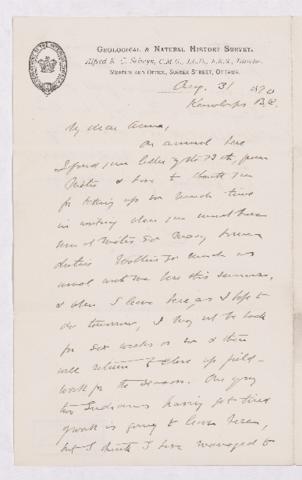 GEOLOGICAL & NATURAL HISTORY SURVEY.
Alfred R. C. Selwyn, C.M.G., LL.D., F.R.S., Director.
MUSEUM AND OFFICE, SUSSEX STREET, OTTAWA.
Aug. 31 1890
Kamloops B.C.
My dear Anna,
On arrival here
I found your letter of the 23rd, from
Métis & have to thank you
for taking up so much time
in writing when you must have
so many
duties. much as
usual with me here this summer,
& when I leave here as I hope to
do tomorrow, I may not be back
for six weeks or so & then
will return to close up field-
work for the season. One of my
two Indians having got tired
of work is going to leave here,
but I think I have managed to